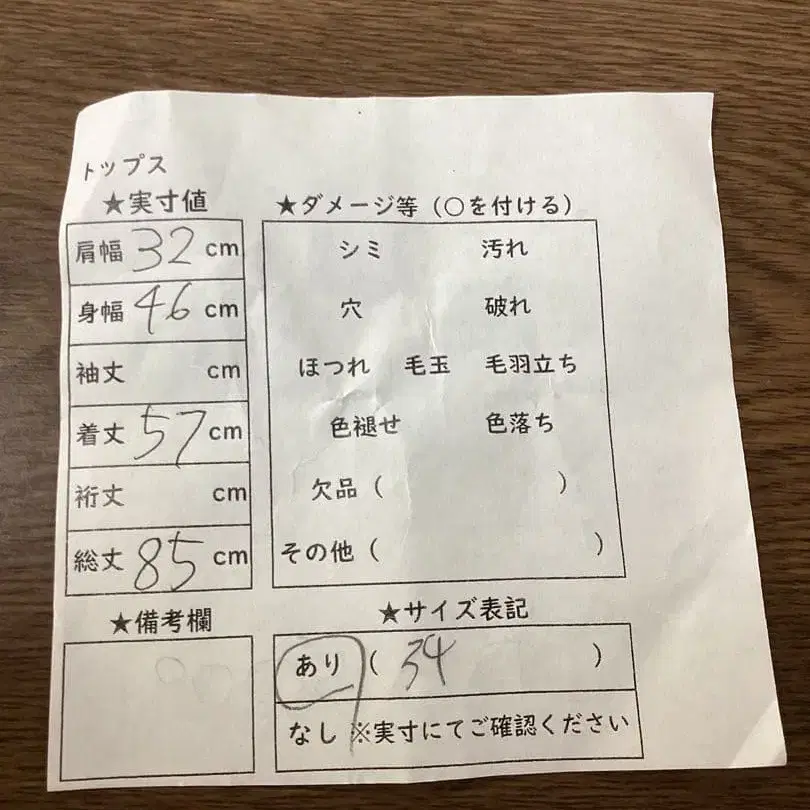 トップス
★実寸値
肩幅 32 cm
身幅 46 cm
袖丈 cm
着丈 57 cm
裄丈 cm
総丈 85 cm
★備考欄
★ダメージ等（○を付ける）
シミ 汚れ
穴 破れ
ほつれ 毛玉 毛羽立ち
色褪せ 色落ち
欠品（ ）
その他（ ）
★サイズ表記
あり（ 34 ）
なし ※実寸にてご確認ください